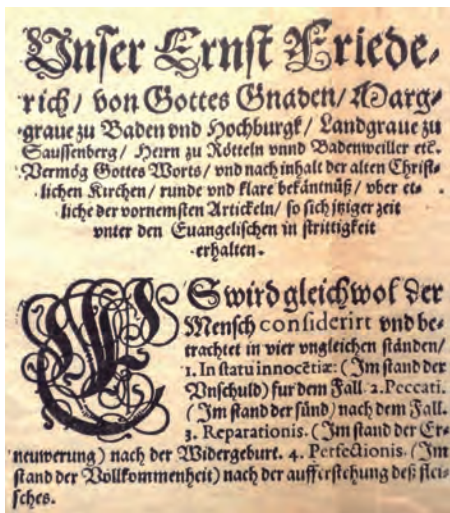 Unser Ernst Friede-
rich / von Gottes Gnaden / Marg-
graue zu Baden vnd Hochburgk / Landgraue zu
Saussenberg / Herrn zu Rötteln vnnd Badenweiller etc.
Vermög Gottes Worts / vnd nach inhalt der alten Christ-
lichen Kirchen / runde vnd klare bekäntnüß / vber et-
liche der vornemsten Artickeln / so sich itziger zeit
vnter den Euangelischen in strittigkeit
erhalten.
ES wird gleichwol der
Mensch considerirt vnd be-
trachtet in vier vngleichen ständen /
1. In statu innocētiæ: (Im stand der
Vnschuld) fur dem Fall. 2. Peccati.
(Im stand der sünd) nach dem Fall.
3. Reparationis. (Im stand der Er-
neuwerung) nach der Widergeburt. 4. Perfectionis. (Im
stand der Vollkommenheit) nach der aufferstehung deß flei-
sches.